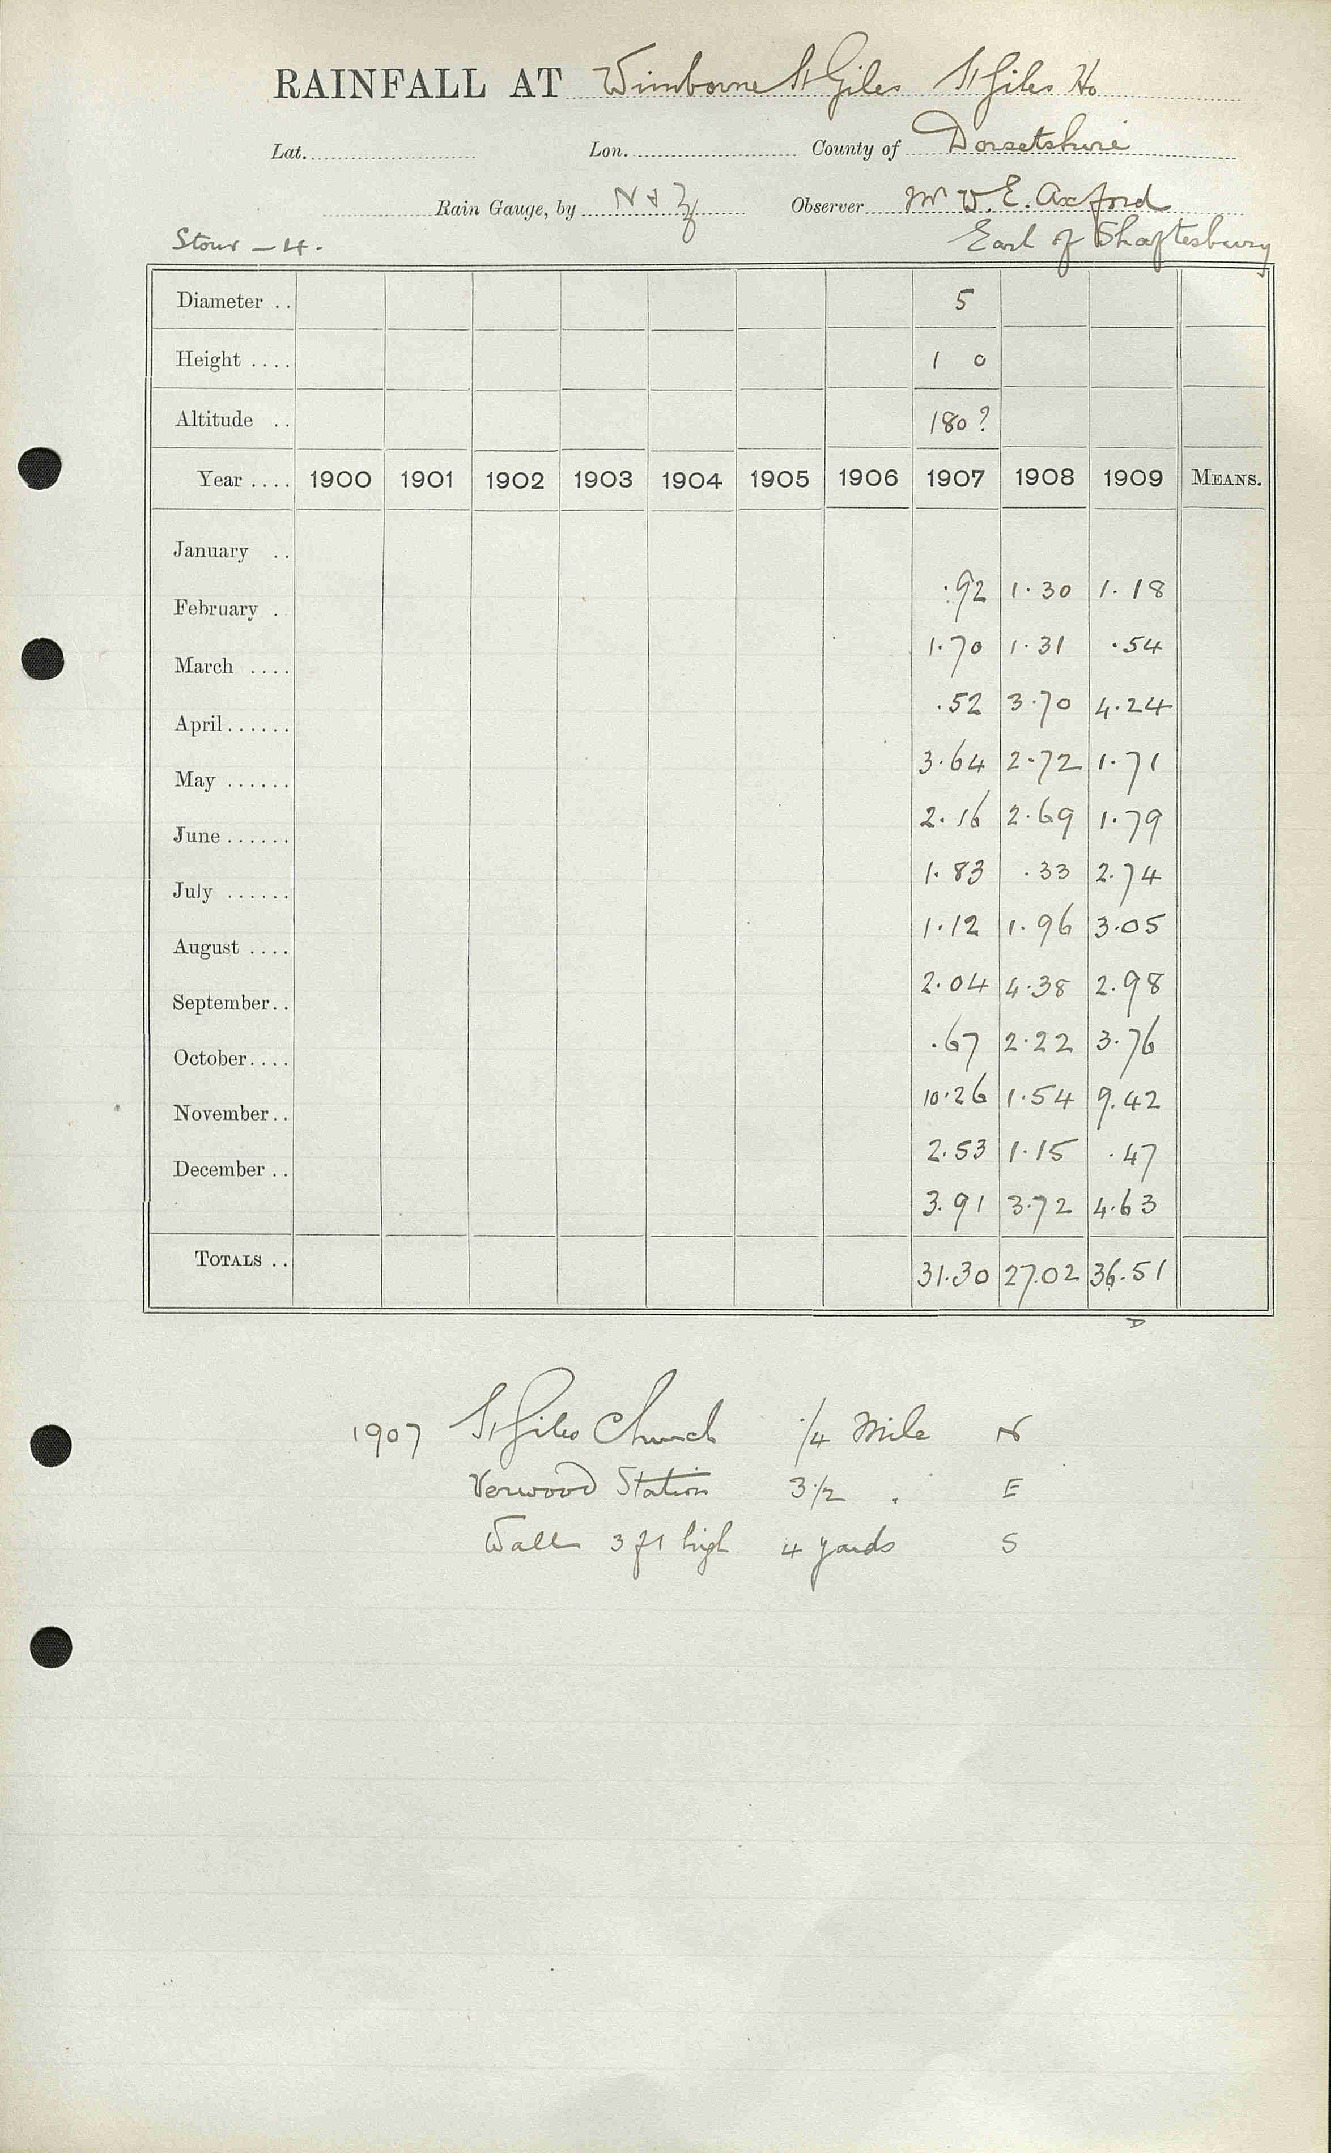 RAINFALL AT Wimborne St Giles St Giles Ho
Lat. Lon. County of Dorsetshire
Rain Gauge, by N & Z Observer Mr W. E. Axford
Stour - 4. Earl of Shaftesbury
Diameter .. 5
Height .... 1 0
Altitude .. 180?
Year .... 1900 1901 1902 1903 1904 1905 1906 1907 1908 1909 MEANS.
January .. .92 1.30 1.18
February . 1.70 1.31 .54
March .... .52 3.70 4.24
April...... 3.64 2.72 1.71
May ...... 2.16 2.69 1.79
June ...... 1.83 .33 2.74
July ...... 1.12 1.96 3.05
August .... 2.04 4.38 2.98
September.. .67 2.22 3.76
October.... 10.26 1.54 9.42
November.. 2.53 1.15 .47
December .. 3.91 3.72 4.63
TOTALS .. 31.30 27.02 36.51
D
1907 St Giles Church 1/4 Mile N
Verwood Station 3 1/2 . E
Wall 3 ft high 4 yards S